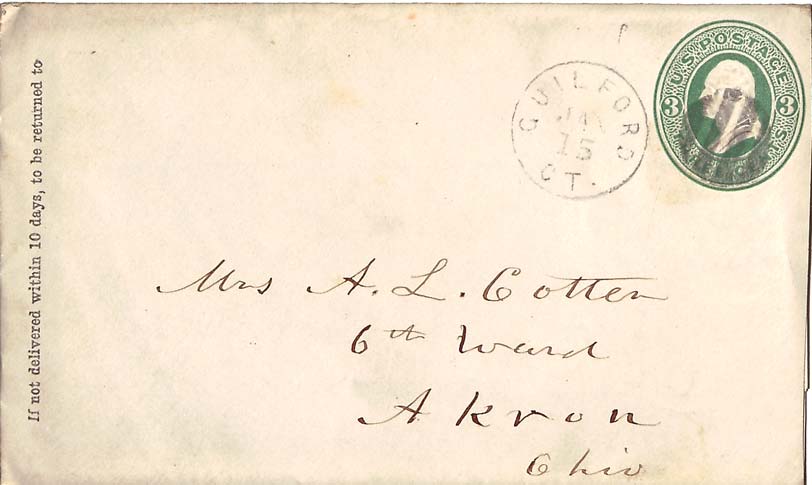 If not delivered within 10 days, to be returned to
GUILFORD
JAN
15
CT.
U.S. POSTAGE
3 3
Mrs A. L. Cotter
6th Ward
Akron
Ohio